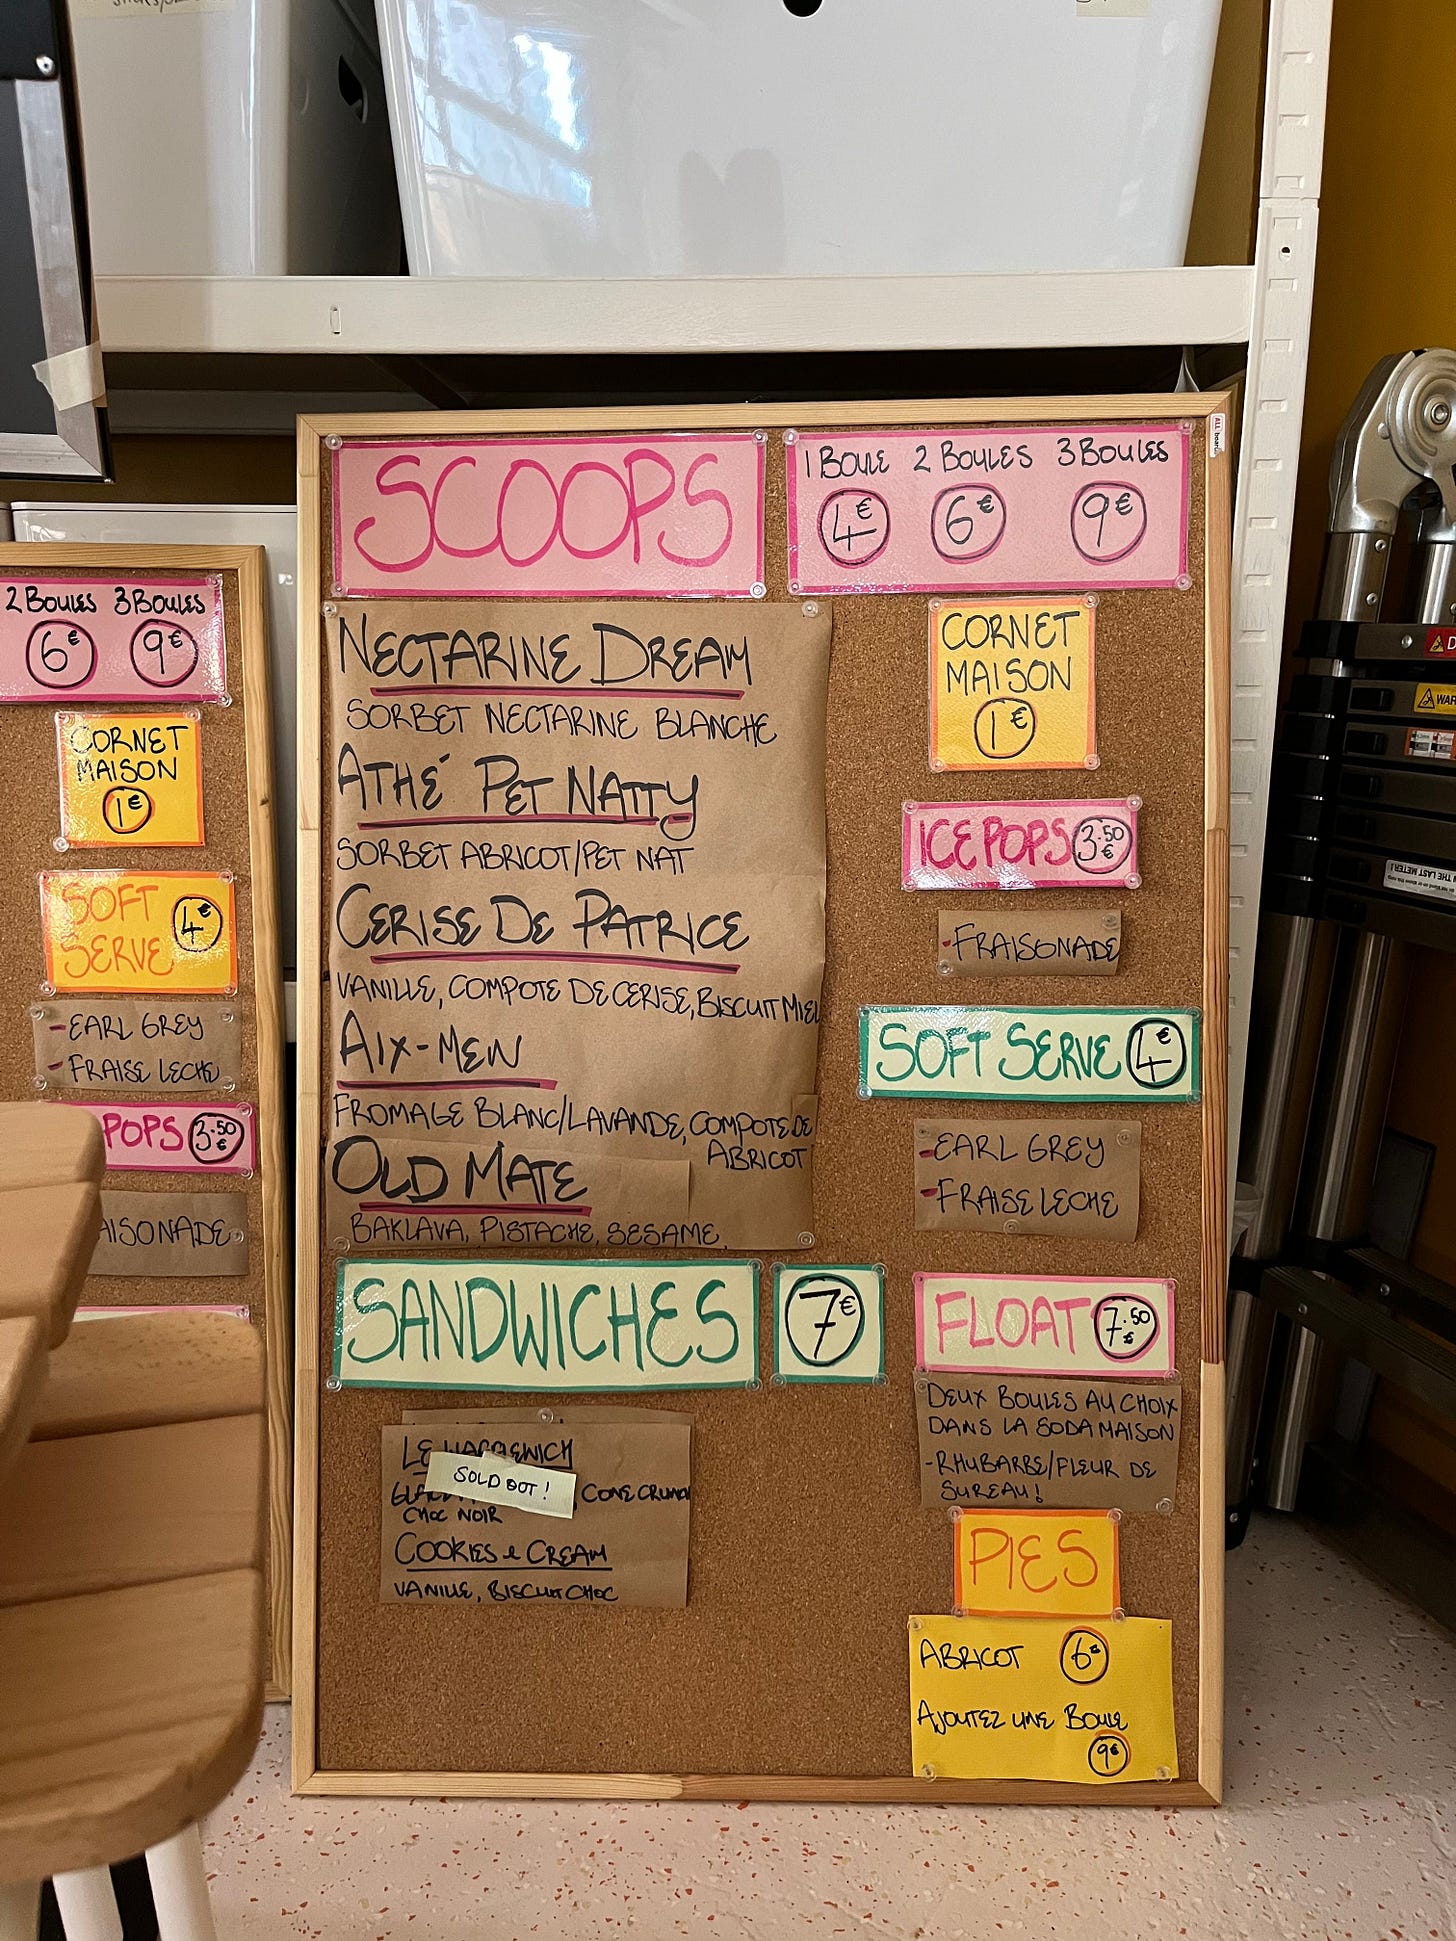 SCOOPS
1 BOULE 2 BOULES 3 BOULES
4€ 6€ 9€
NECTARINE DREAM
SORBET NECTARINE BLANCHE
ATHÉ PET NATTY
SORBET ABRICOT/PET NAT
CERISE DE PATRICE
VANILLE, COMPOTE DE CERISE, BISCUIT MIEL
AIX-MEN
FROMAGE BLANC/LAVANDE, COMPOTE DE
ABRICOT
OLD MATE
BAKLAVA, PISTACHE, SESAME,
SANDWICHES 7€
LE
SOLD OUT!
, CONE CRUNCH
CHOC NOIR
COOKIES & CREAM
VANILLE, BISCUIT CHOC
CORNET
MAISON
1€
ICE POPS 3.50€
-FRAISONADE
SOFT SERVE 4€
-EARL GREY
-FRAISE LECHE
FLOAT 7.50€
DEUX BOULES AU CHOIX
DANS LA SODA MAISON
-RHUBARBE/FLEUR DE
SUREAU!
PIES
ABRICOT 6€
AJOUTEZ UNE BOULE
9€
2 BOULES 3 BOULES
6€ 9€
CORNET
MAISON
1€
SOFT
SERVE 4€
-EARL GREY
-FRAISE LECHE
POPS 3.50€
AISONADE